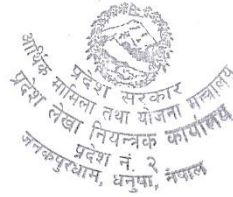 प्रदेश सरकार
आर्थिक मामिला तथा योजना मन्त्रालय
प्रदेश लेखा नियन्त्रक कार्यालय
प्रदेश नं. २
जनकपुरधाम, धनुषा, नेपाल